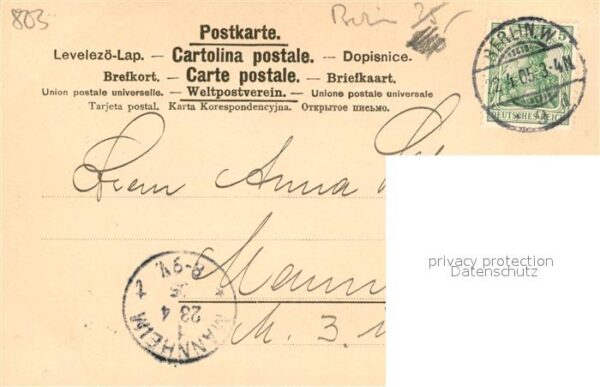 803
Berlin 25,-
Postkarte.
Levelezö-Lap. — Cartolina postale. — Dopisnice.
Brefkort. — Carte postale. — Briefkaart.
Union postale universelle. — Weltpostverein. — Unione postale universale
Tarjeta postal. Karta Korespondencyjna. Открытое письмо.
BERLIN. W.
4.05.3-4N.
9
5
DEUTSCHES REICH
Anna
privacy protection
Datenschutz
M. 3.
MANNHEIM 2
23 4
05
8-9V.